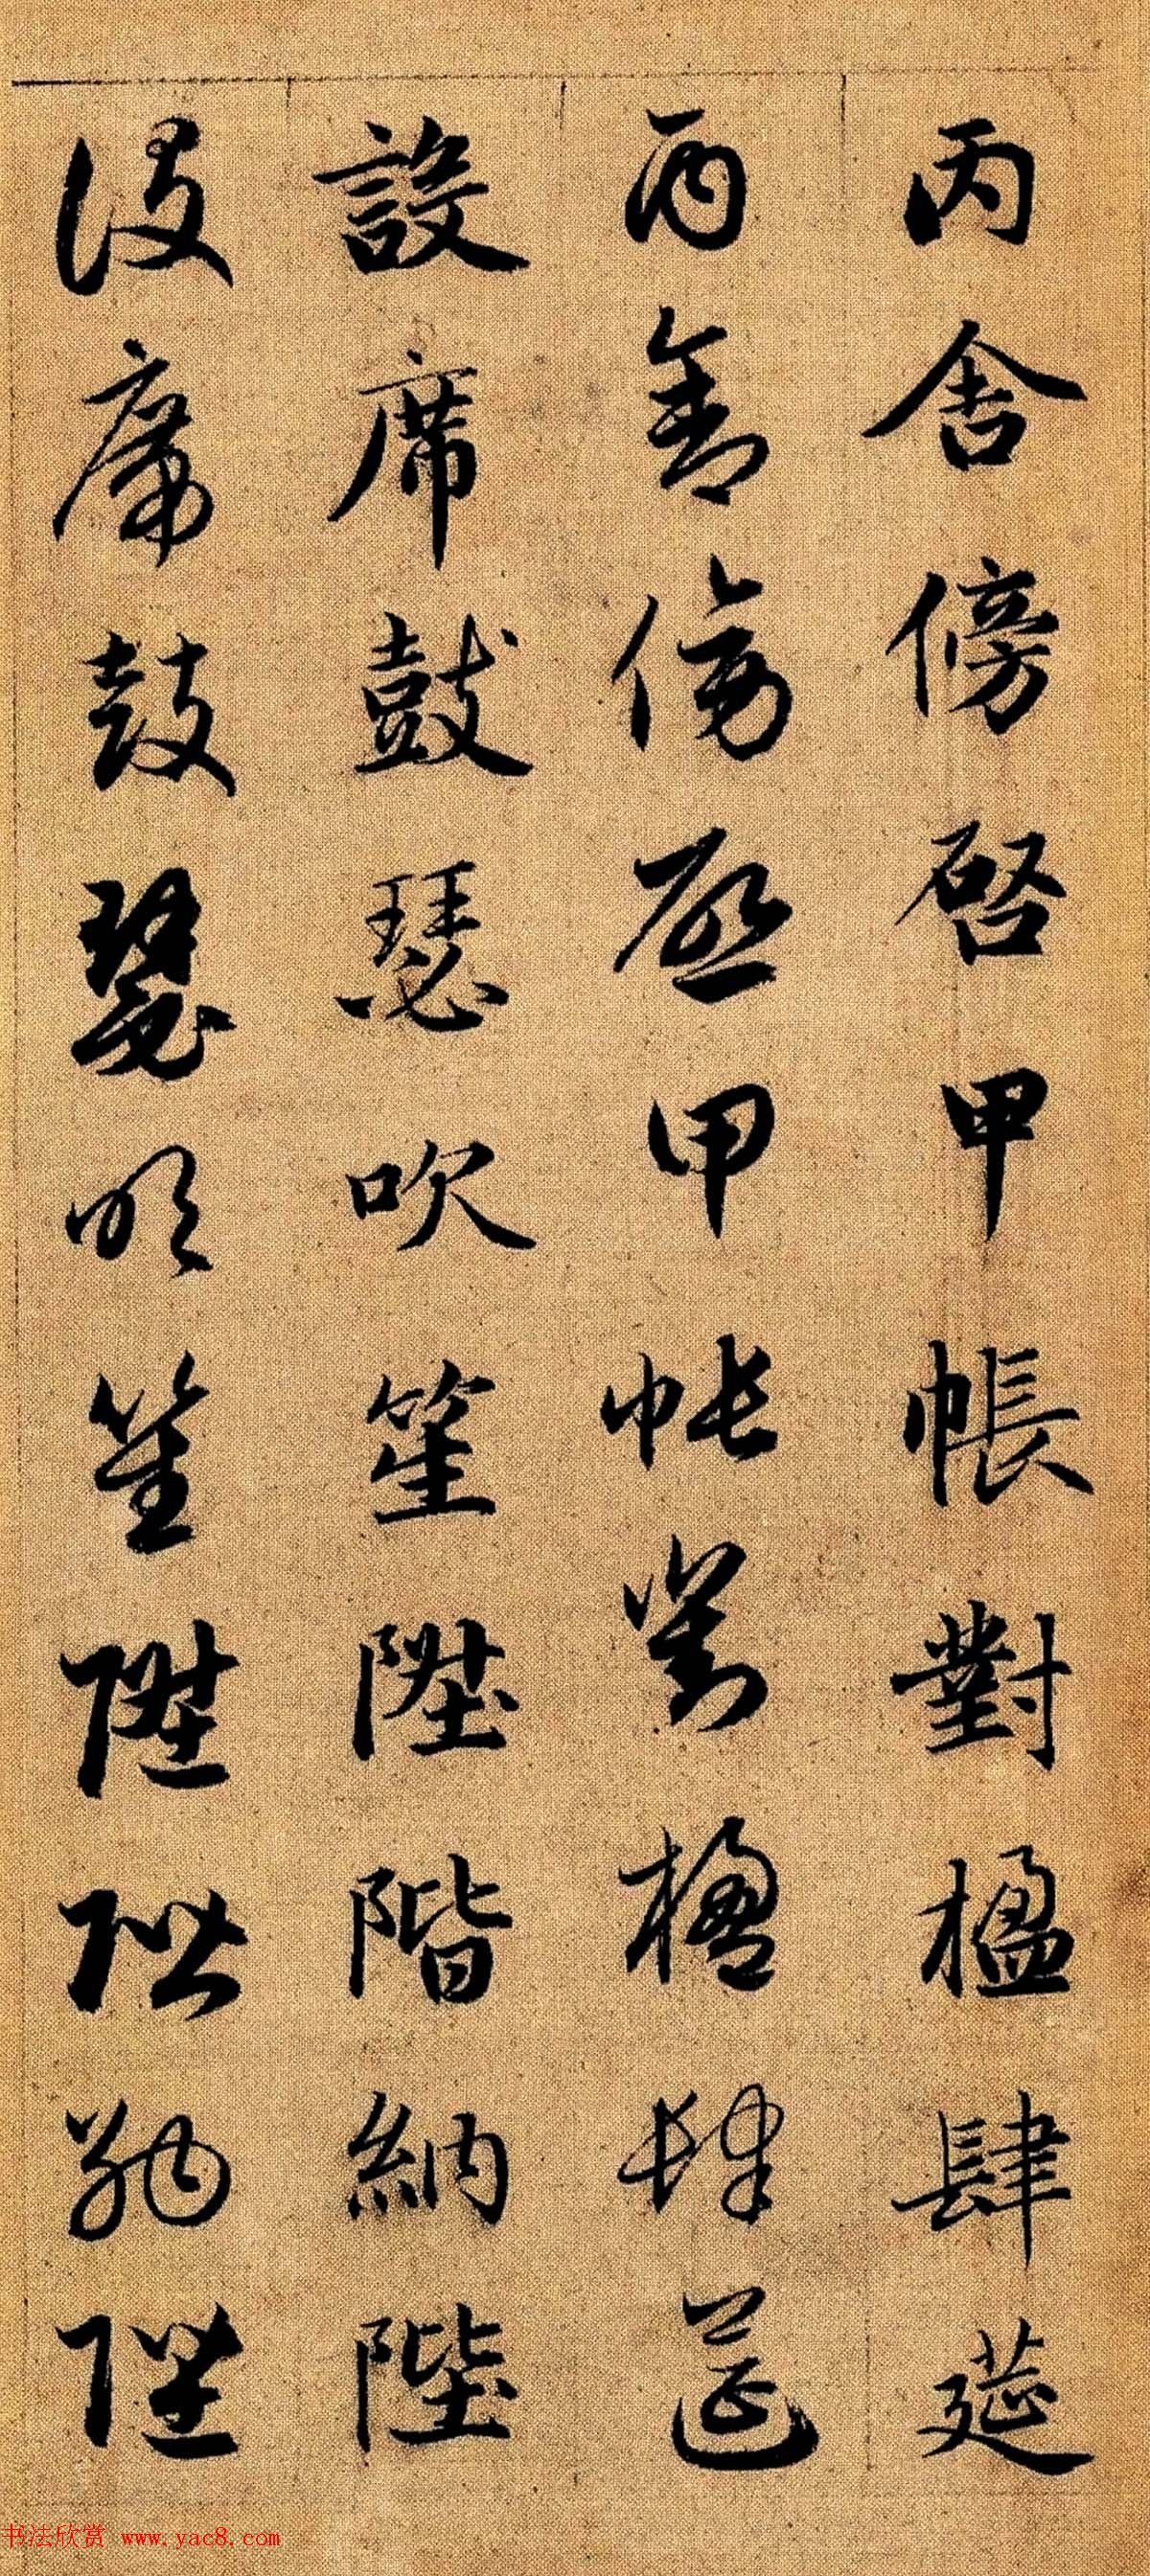 丙舍傍啓甲帳對楹肆莚
丙舍傍啓甲帳對楹肆莚
設席鼓瑟吹笙陞階納陛
設席鼓瑟吹笙陞階納陛
书法欣赏 www.yac8.com